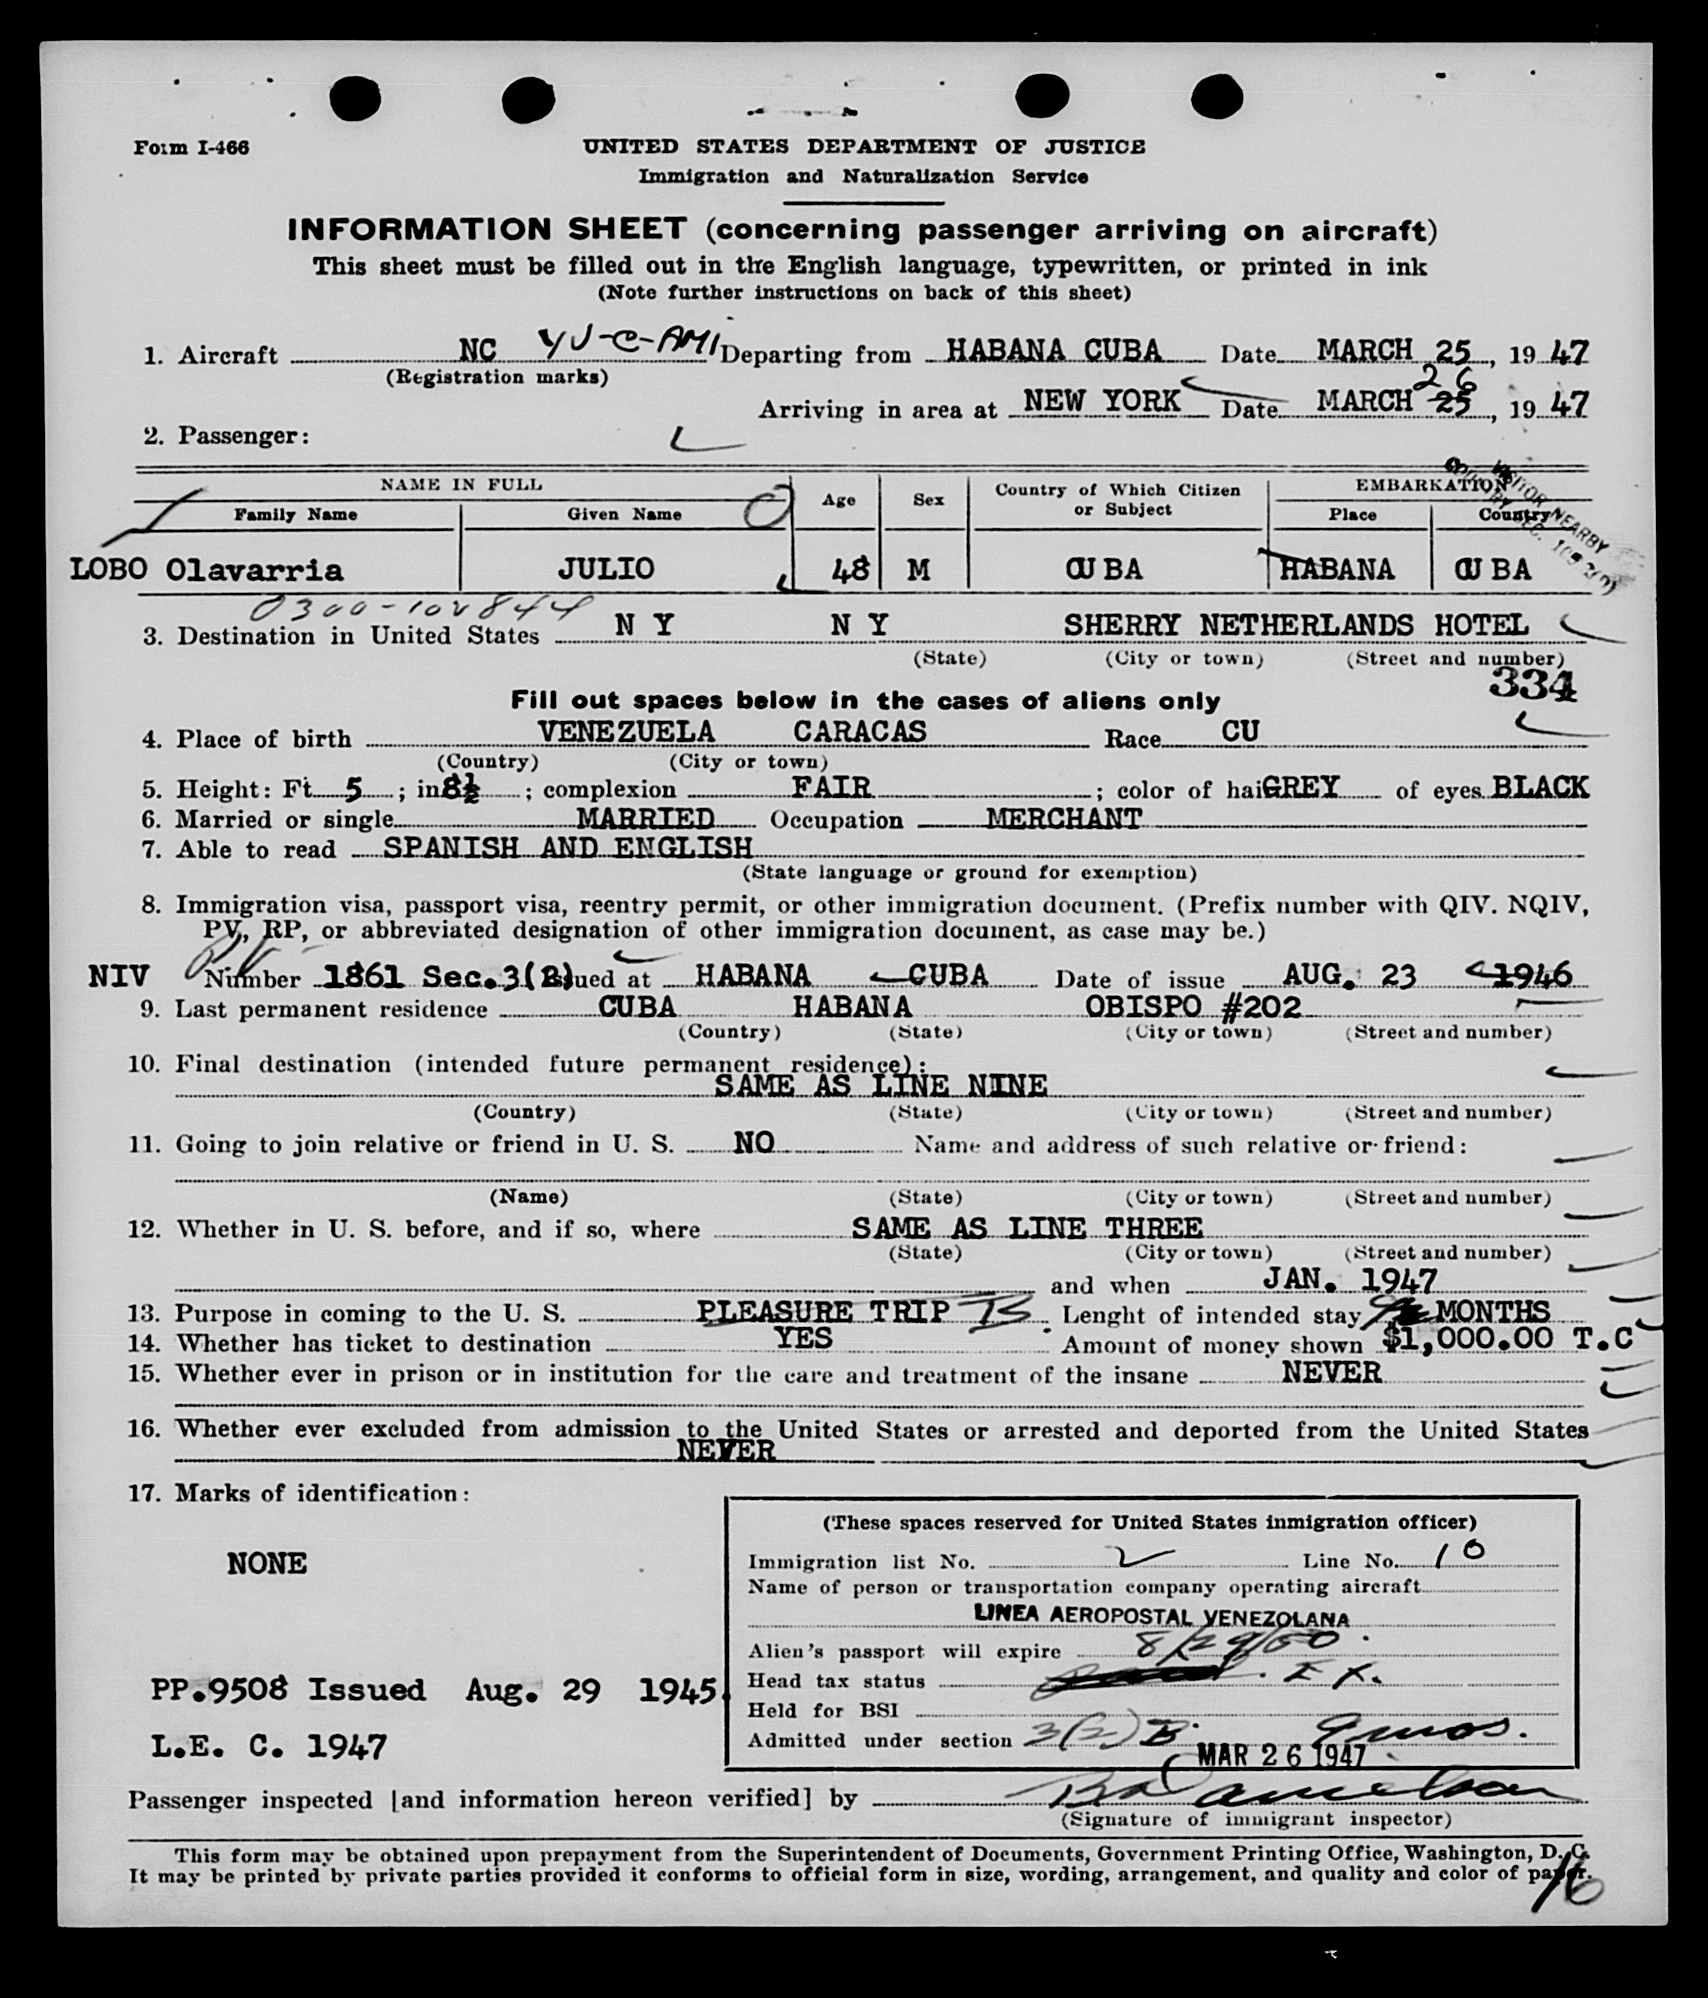 Form I-466
UNITED STATES DEPARTMENT OF JUSTICE
Immigration and Naturalization Service
INFORMATION SHEET (concerning passenger arriving on aircraft)
This sheet must be filled out in the English language, typewritten, or printed in ink
(Note further instructions on back of this sheet)
1. Aircraft NC YV-C-AMI Departing from HABANA CUBA Date MARCH 25, 19 47
(Registration marks)
26
Arriving in area at NEW YORK Date MARCH 25, 19 47
2. Passenger:
NAME IN FULL Age Sex Country of Which Citizen or Subject EMBARKATION
Family Name Given Name Place Country
VISITOR NEARBY
LOBO Olavarria JULIO 48 M CUBA HABANA CUBA
0300-102844
3. Destination in United States N Y N Y SHERRY NETHERLANDS HOTEL
(State) (City or town) (Street and number)
334
Fill out spaces below in the cases of aliens only
4. Place of birth VENEZUELA CARACAS Race CU
(Country) (City or town)
5. Height: Ft. 5 ; in 8½ ; complexion FAIR ; color of hai GREY of eyes BLACK
6. Married or single MARRIED Occupation MERCHANT
7. Able to read SPANISH AND ENGLISH
(State language or ground for exemption)
8. Immigration visa, passport visa, reentry permit, or other immigration document. (Prefix number with QIV. NQIV,
PV, RP, or abbreviated designation of other immigration document, as case may be.)
NIV PV Number 1861 Sec.3(2) Issued at HABANA CUBA Date of issue AUG. 23 1946
9. Last permanent residence CUBA HABANA OBISPO #202
(Country) (State) (City or town) (Street and number)
10. Final destination (intended future permanent residence):
SAME AS LINE NINE
(Country) (State) (City or town) (Street and number)
11. Going to join relative or friend in U. S. NO Name and address of such relative or friend:
(Name) (State) (City or town) (Street and number)
12. Whether in U. S. before, and if so, where SAME AS LINE THREE
(State) (City or town) (Street and number)
and when JAN. 1947
13. Purpose in coming to the U. S. PLEASURE TRIP B Lenght of intended stay MONTHS
14. Whether has ticket to destination YES Amount of money shown $1,000.00 T.C
15. Whether ever in prison or in institution for the care and treatment of the insane NEVER
16. Whether ever excluded from admission to the United States or arrested and deported from the United States
NEVER
17. Marks of identification:
NONE
(These spaces reserved for United States inmigration officer)
Immigration list No. 2 Line No. 10
Name of person or transportation company operating aircraft
LINEA AEROPOSTAL VENEZOLANA
Alien's passport will expire 8/29/50
Head tax status EX.
Held for BSI
Admitted under section 3(2) B. mos.
MAR 26 1947
PP.9508 Issued Aug. 29 1945.
L.E. C. 1947
Passenger inspected [and information hereon verified] by
(Signature of immigrant inspector)
This form may be obtained upon prepayment from the Superintendent of Documents, Government Printing Office, Washington, D. C.
It may be printed by private parties provided it conforms to official form in size, wording, arrangement, and quality and color of paper.
16